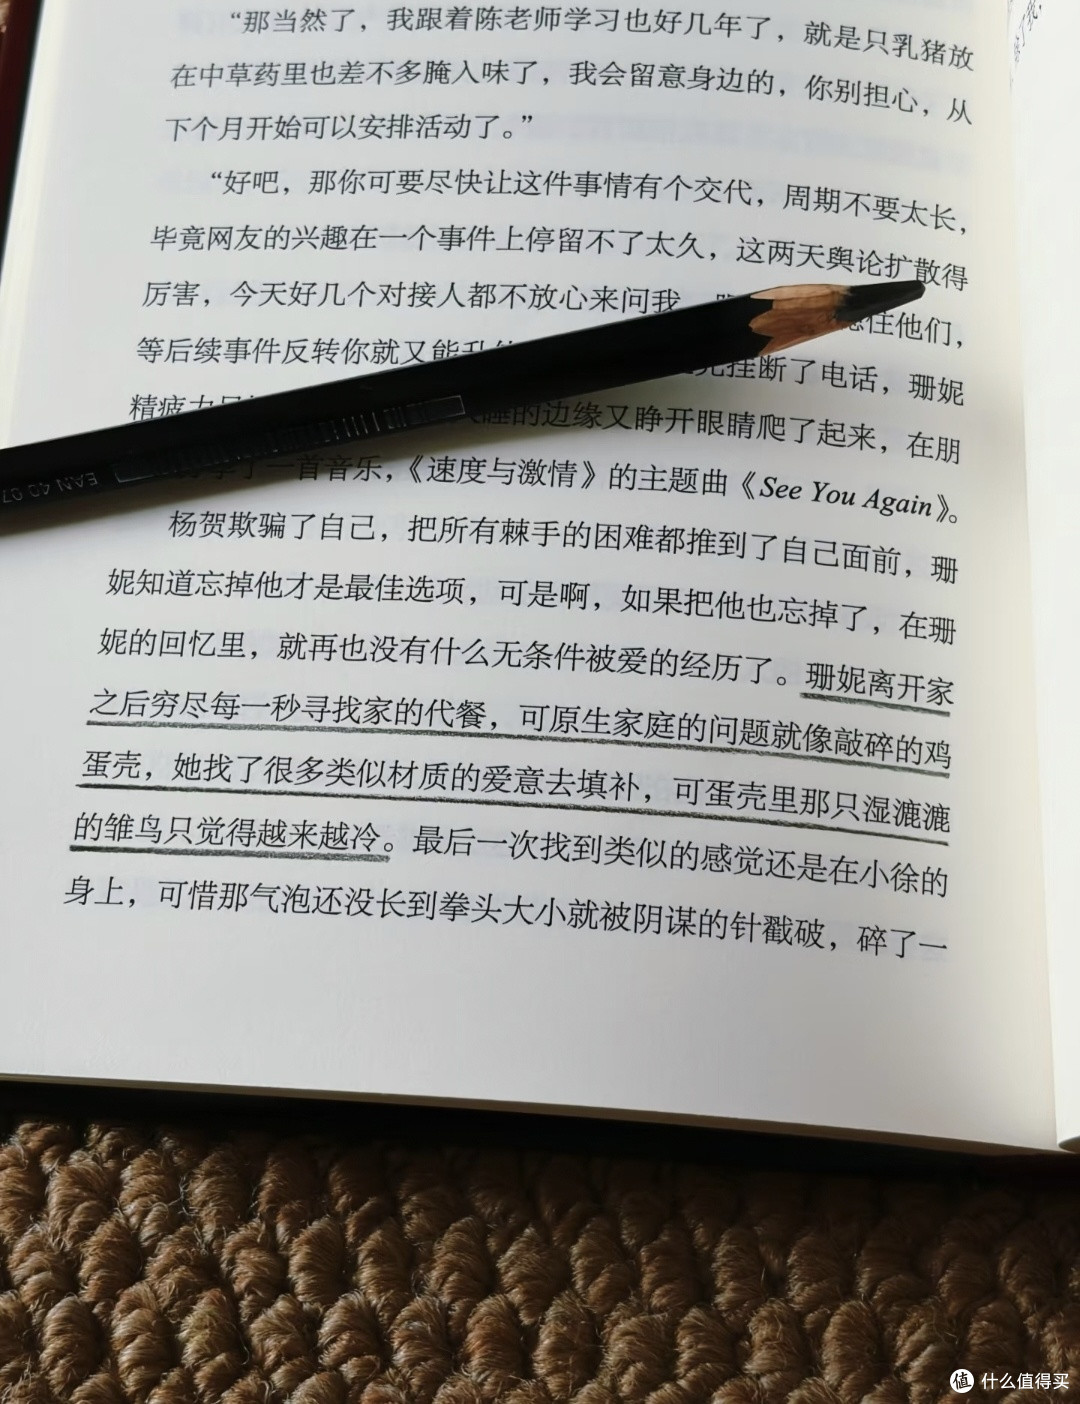 “那当然了，我跟着陈老师学习也好几年了，就是只乳猪放
在中草药里也差不多腌入味了，我会留意身边的，你别担心，从
下个月开始可以安排活动了。”
“好吧，那你可要尽快让这件事情有个交代，周期不要太长，
毕竟网友的兴趣在一个事件上停留不了太久，这两天舆论扩散得
厉害，今天好几个对接人都不放心来问我，住他们，
等后续事件反转你就又能挂断了电话，珊妮
精疲力的边缘又睁开眼睛爬了起来，在朋
了一首音乐，《速度与激情》的主题曲《See You Again》。
杨贺欺骗了自己，把所有棘手的困难都推到了自己面前，珊
妮知道忘掉他才是最佳选项，可是啊，如果把他也忘掉了，在珊
妮的回忆里，就再也没有什么无条件被爱的经历了。珊妮离开家
之后穷尽每一秒寻找家的代餐，可原生家庭的问题就像敲碎的鸡
蛋壳，她找了很多类似材质的爱意去填补，可蛋壳里那只湿漉漉
的雏鸟只觉得越来越冷。最后一次找到类似的感觉还是在小徐的
身上，可惜那气泡还没长到拳头大小就被阴谋的针戳破，碎了一
EAN 40 07
值 什么值得买